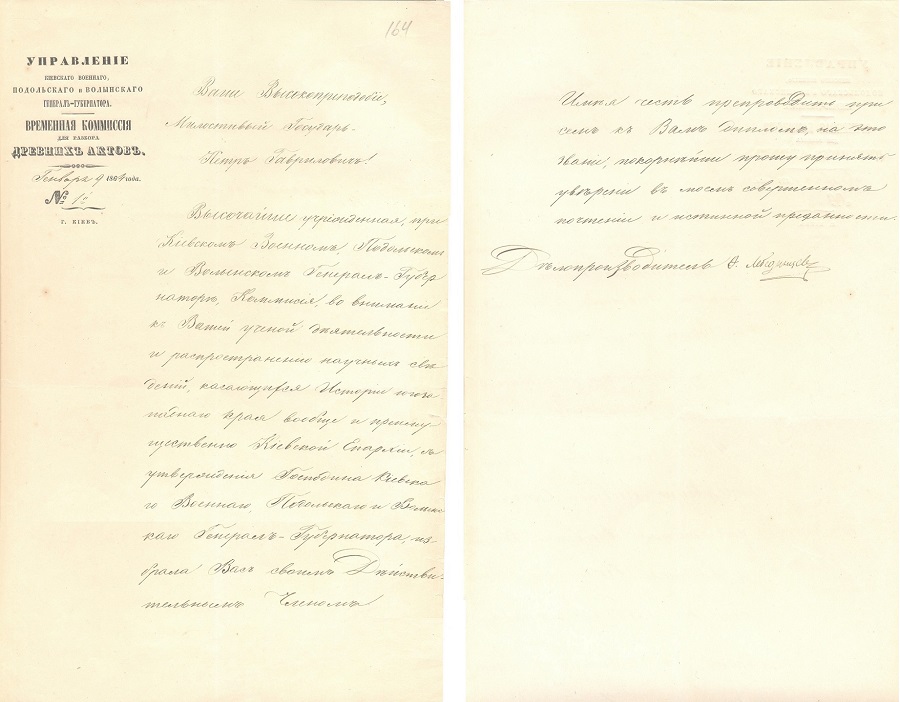 164
УПРАВЛЕНІЕ
КІЕВСКАГО ВОЕННАГО,
ПОДОЛЬСКАГО и ВОЛЫНСКАГО
ГЕНЕРАЛЪ-ГУБЕРНАТОРА.
ВРЕМЕННАЯ КОММИССІЯ
ДЛЯ РАЗБОРА
ДРЕВНИХЪ АКТОВЪ.
Генваря 9 1864 года.
№ 10
Г. КІЕВЪ.
Ваше Высокопреподобіе,
Милостивый Государь
Петръ Гавриловичъ!
Высочайше учрежденная, при
Кіевскомъ Военномъ, Подольскомъ
и Волынскомъ Генералъ-Губер
наторѣ, Коммисія, во вниманіи
къ Вашей ученой дѣятельности
и распространенію научныхъ свѣ
деній, касающихся Исторіи югоза
паднаго края вообще и преиму
щественно Кіевской Епархіи, съ
утвержденія Господина Кіевска
го Военнаго, Подольскаго и Волын
скаго Генералъ-Губернатора, из-
брала Васъ своимъ Дѣйстви-
тельнымъ Членомъ
Имѣя честь препроводить при
семъ къ Вамъ дипломъ, на это
званіе, покорнѣйше прошу принять
увѣреніе въ моемъ совершенномъ
почтеніи и истинной преданности.
Дѣлопроизводитель Ѳ. Лебединцевъ